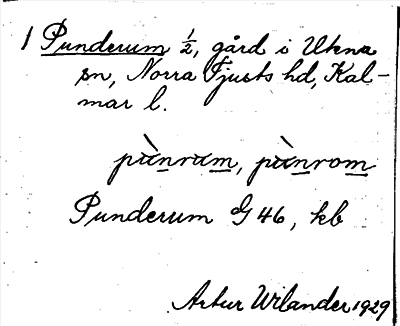 1 Punderum ½, gård i Ukna
sn, Norra Tjusts hd, Kal-
mar l.
pùnrum, pùnrom
Punderum G 46, kb
Artur Wilander 1929